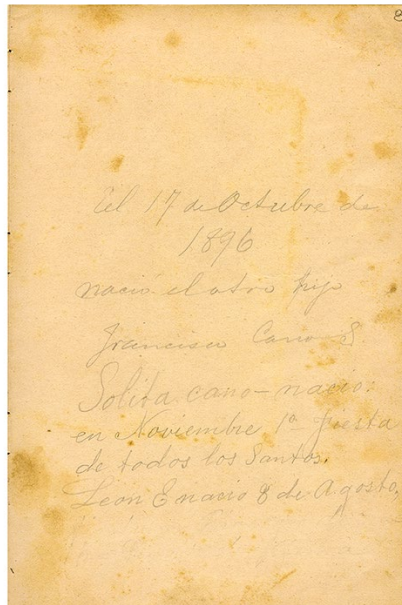 8
El 17 de Octubre de
1896
nació el otro hijo
Francisco Cano S
Solita cano - nacio:
en Noviembre 1º fiesta
de todos los Santos.
Leon E nacio 8 de Agosto,